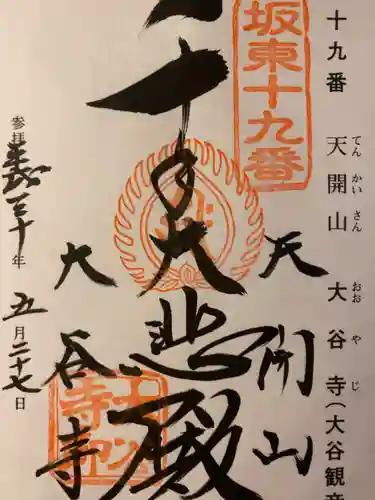 十九番 天開山 大谷寺(大谷観音
てんかいさん おおやじ
坂東十九番
天開山
千手大悲殿
大谷寺
参拝 平成三十年 五月二十七日